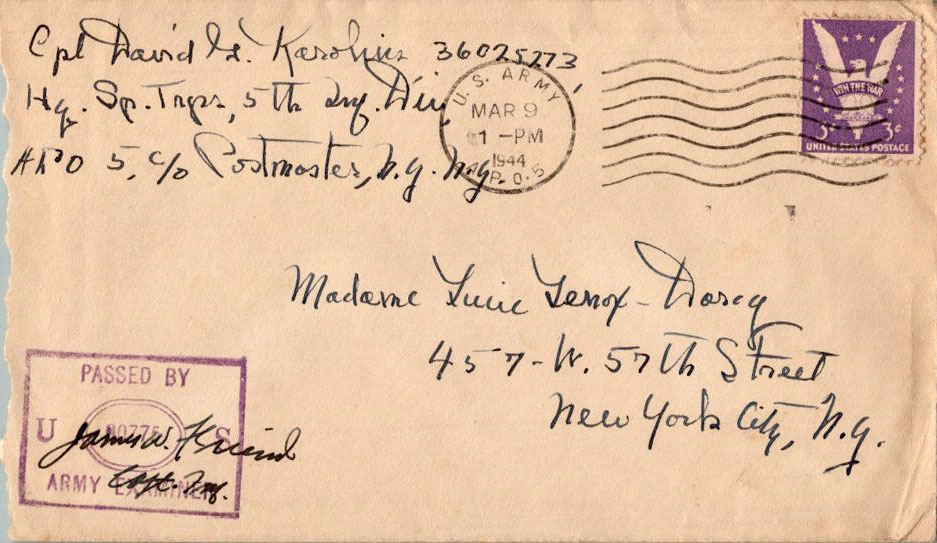 Cpl David G. Karolius 36025273
Hq. Sp. Trps, 5th Inf. Div.
APO 5, c/o Postmaster, N.Y. N.Y.
U.S. ARMY
MAR 9
1 -PM
1944
P.O. 5
WIN THE WAR
3¢ 3¢
UNITED STATES POSTAGE
Madame Lucie Lenox-Darcy
457-W. 57th Street
New York City, N.Y.
PASSED BY
U 00775 S
James W. Friend
Capt. Inf.
ARMY EXAMINER